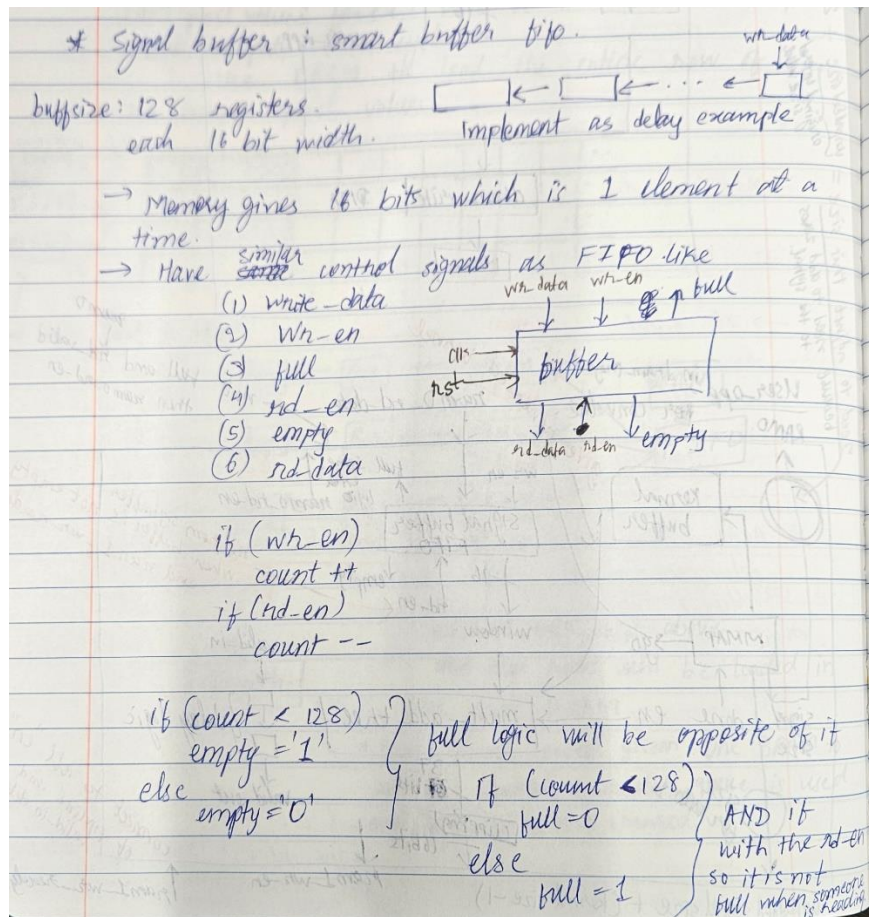 * Signal buffer : smart buffer fifo.
wr-data
buffsize: 128 registers.
each 16 bit width.
Implement as delay example
→ Memory gives 16 bits which is 1 element at a
time.
→ Have similar control signals as FIFO like
(1) write_data
(2) wr-en
(3) full
(4) rd_en
(5) empty
(6) rd_data
wr_data wr-en full
clk
rst
buffer
rd_data rd-en empty
if (wr-en)
count ++
if (rd-en)
count --
if (count < 128)
empty = '1'
else
empty = '0'
full logic will be opposite of it
if (count < 128)
full = 0
else
full = 1
AND it
with the rd-en
so it is not
full when someone
is reading